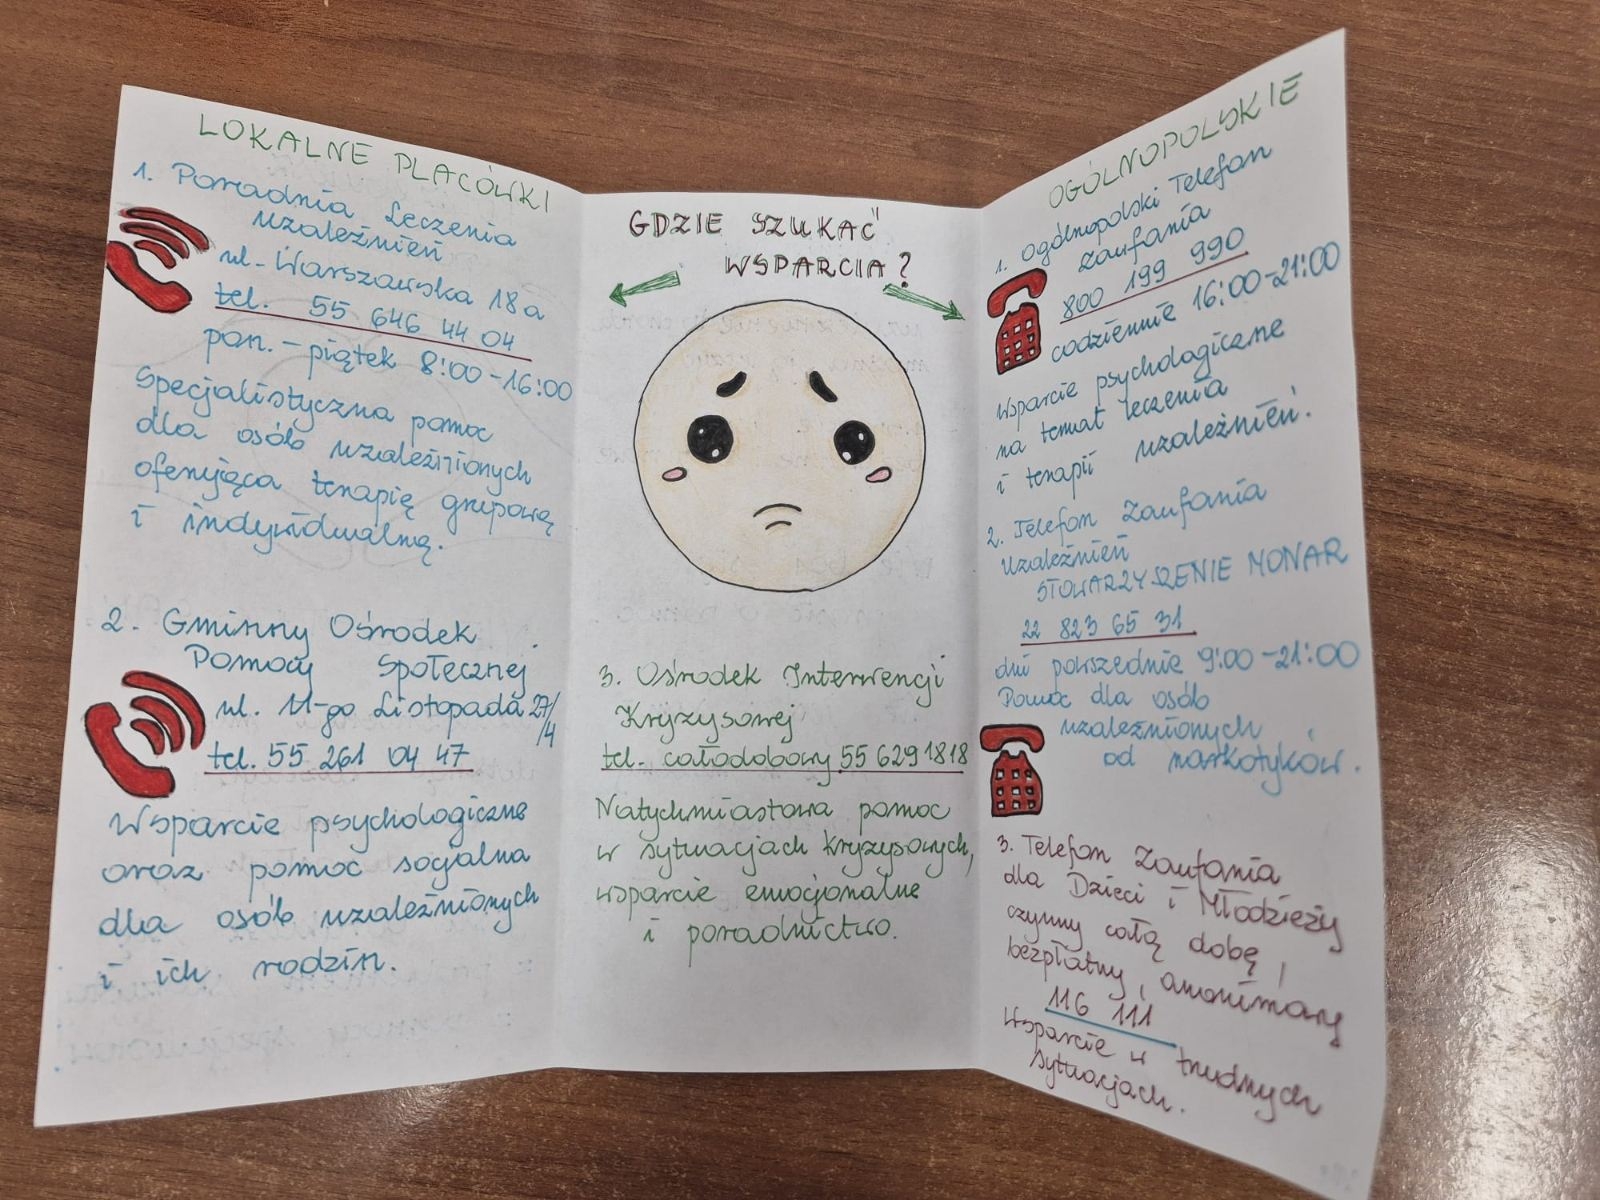 LOKALNE PLACÓWKI
1. Poradnia Leczenia
uzależnień
ul. Warszawska 18a
tel. 55 646 44 04
pon. - piątek 8:00-16:00
Specjalistyczna pomoc
dla osób uzależnionych
oferująca terapię grupową
i indywidualną.
2. Gminny Ośrodek
Pomocy Społecznej
ul. 11-go Listopada 27/
/4
tel. 55 261 04 47
Wsparcie psychologiczne
oraz pomoc socjalna
dla osób uzależnionych
i ich rodzin.
GDZIE SZUKAĆ
WSPARCIA?
3. Ośrodek Interwencji
Kryzysowej
tel. całodobowy 55 629 18 18
Natychmiastowa pomoc
w sytuacjach kryzysowych,
wsparcie emocjonalne
i poradnictwo.
OGÓLNOPOLSKIE
1. Ogólnopolski Telefon
Zaufania
800 199 990
codziennie 16:00-21:00
Wsparcie psychologiczne
na temat leczenia
i terapii uzależnień.
2. Telefon Zaufania
Uzależnień
STOWARZYSZENIE MONAR
22 823 65 31
dni powszednie 9:00-21:00
Pomoc dla osób
uzależnionych
od narkotyków.
3. Telefon Zaufania
dla Dzieci i Młodzieży
czynny całą dobę,
bezpłatny, anonimowy
116 111
Wsparcie w trudnych
sytuacjach.